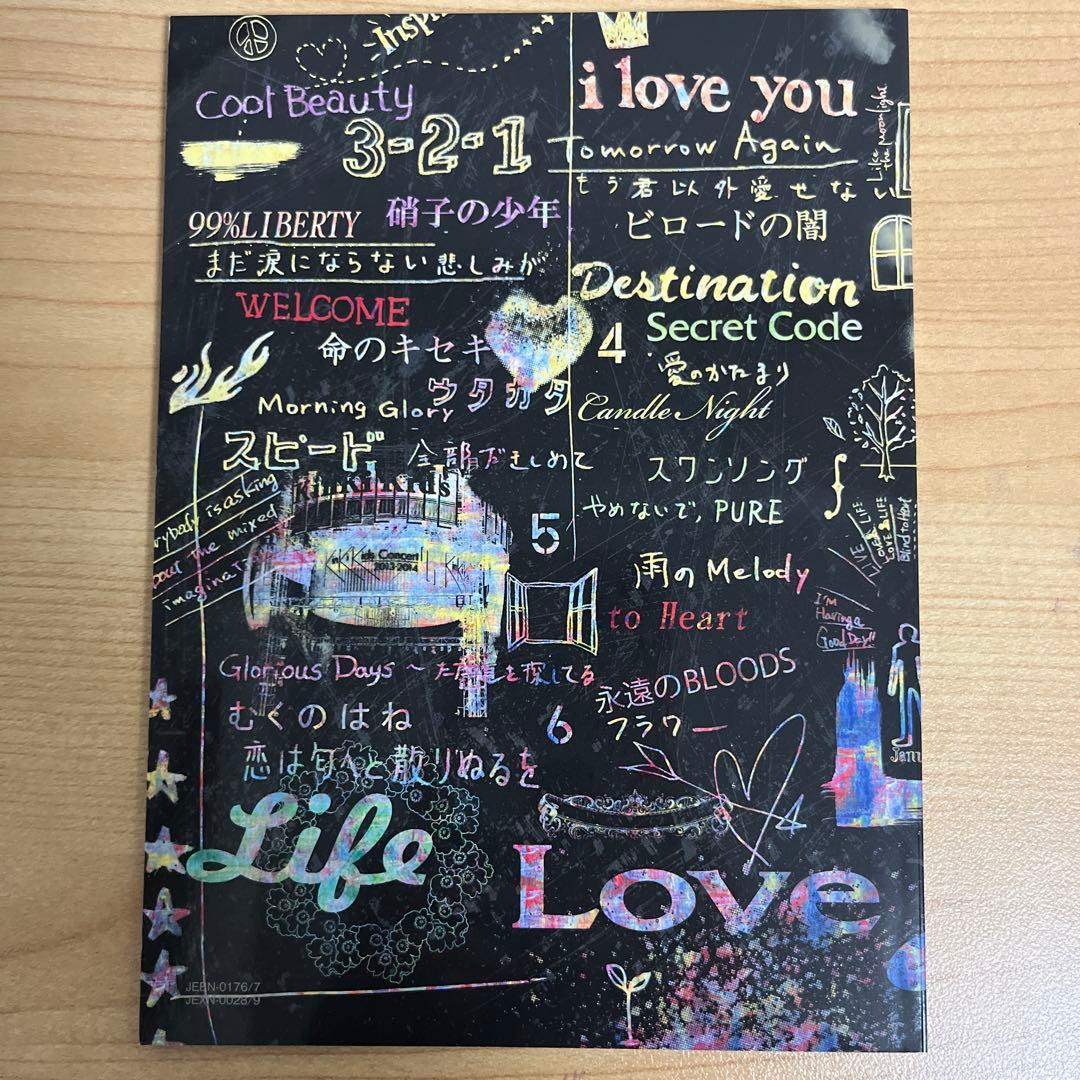 Cool Beauty
3-2-1
i love you
Tomorrow Again
Like the Moonlight
もう君以外愛せない
99%LIBERTY
硝子の少年
ビロードの闇
まだ涙にならない悲しみが
WELCOME
Destination
4
Secret Code
命のキセキ
愛のかたまり
ウタカタ
Morning Glory
Candle Night
スピード
全部だきしめて
スワンソング
やめないで,PURE
rybody is asking
about the mixed
KinKi Kids
Kids Concert
2013-2014
5
雨のMelody
LIVE LIFE
LOVE & LIFE
Blind to Heart
to Heart
I'm
Having a
Good Day!!
Glorious Days～ただ道を探してる
永遠のBLOODS
むくのはね
6
フラワー
恋は匂へと散りぬるを
Life
Love
JEBN-0176/7
JEXN-0028/9